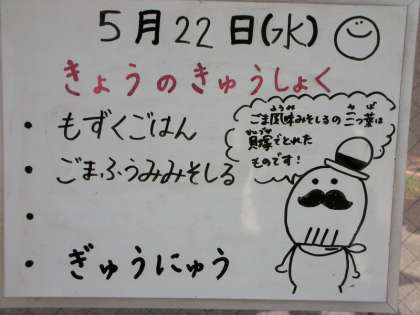 5月22日(水)
きょうのきゅうしょく
• もずくごはん
• ごまふうみみそしる
•
• ぎゅうにゅう
ごま風味みそしるの三つ葉は
貝塚でとれた
ものです!